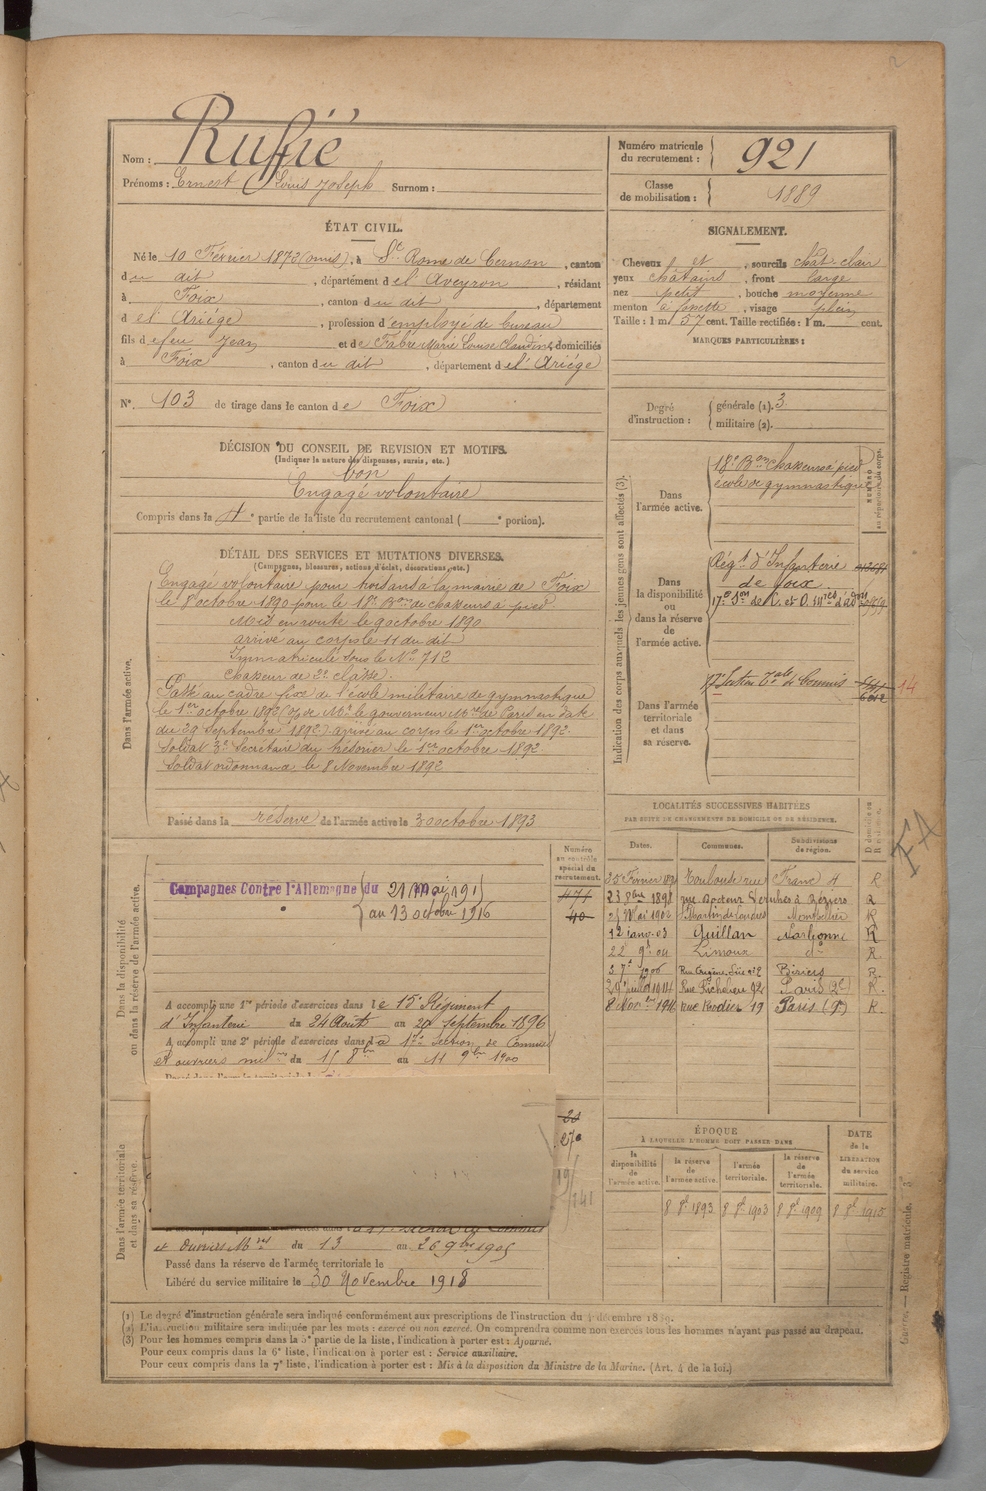 Nom : Ruffié
Prénoms : Ernest Louis Joseph Surnom :
Numéro matricule du recrutement : 921
Classe de mobilisation : 1889
ÉTAT CIVIL.
Né le 10 Février 1872 (omis), à St Rome de Cernon, canton
du dit, département de l'Aveyron, résidant
à Foix, canton du dit, département
de l'Ariége, profession d'employé de bureau
fils de feu Jean et de Fabre Marie Louise Claudine, domiciliés
à Foix, canton du dit, département de l'Ariége
N° 103 de tirage dans le canton de Foix
SIGNALEMENT.
Cheveux et, sourcils chât. clair
yeux châtains, front large
nez petit, bouche moyenne
menton à fossette, visage plein
Taille : 1 m. 57 cent. Taille rectifiée : 1 m. cent.
MARQUES PARTICULIÈRES :
Degré d'instruction : générale (1). 3
militaire (2).
DÉCISION DU CONSEIL DE REVISION ET MOTIFS.
(Indiquer la nature des dispenses, sursis, etc.)
bon
Engagé volontaire
Compris dans la 4e partie de la liste du recrutement cantonal ( e portion).
DÉTAIL DES SERVICES ET MUTATIONS DIVERSES.
(Campagnes, blessures, actions d'éclat, décorations, etc.)
Dans l'armée active.
Engagé volontaire pour trois ans à la mairie de Foix
le 8 octobre 1890 pour le 18e Bon de chasseurs à pied
Mis en route le 9 octobre 1890
arrivé au corps le 11 du dit
Immatriculé sous le No 712
Chasseur de 2e classe.
Passé au cadre fixe de l'école militaire de gymnastique
le 1er octobre 1892 (o/ de Mr le gouverneur Mre de Paris en date
du 29 septembre 1892) arrivé au corps le 1er octobre 1892.
Soldat 3e Secrétaire du trésorier le 1er octobre 1892
Soldat ordonnance le 8 Novembre 1892
Passé dans la réserve de l'armée active le 30 octobre 1893
Indication des corps auxquels les jeunes gens sont affectés (3).
NUMÉRO au répertoire du corps.
Dans l'armée active.
18e Bon chasseurs à pied
école de gymnastique
Dans la disponibilité ou dans la réserve de l'armée active.
Régt d'Infanterie
de Foix.
17e Son de C. et O. Mres d'adon
Dans l'armée territoriale et dans sa réserve.
17e Section Tale de Commis 14
LOCALITÉS SUCCESSIVES HABITÉES
PAR SUITE DE CHANGEMENTS DE DOMICILE OU DE RÉSIDENCE.
Dates. Communes. Subdivisions de région. D domicile ou R résidence.
25 Février Toulouse rue Franc 4 R
23 8bre 1898 rue Docteur Béziers R
Montpellier R
12 janv. 03 Quillan Narbonne R
22 9e 04 Limoux do R.
Béziers R.
Rue Richelieu 92 Paris (2e) R.
8 Nov. bre rue Rodier 19 Paris (9e) R.
Dans la disponibilité ou dans la réserve de l'armée active.
Numéro au contrôle spécial du recrutement.
Campagnes Contre l'Allemagne du 21 Mai 191
au 13 octobre 1916
471
40
A accompli une 1re période d'exercices dans le 15e Régiment
d'Infanterie du 24 Août au 20 septembre 1896
A accompli une 2e période d'exercices dans la 17e Section de Commis
et ouvriers milres du 15 8bre au 11 9bre 1900
Dans l'armée territoriale et dans sa réserve.
et ouvriers Mres du 13 au 26 9bre 1905
Passé dans la réserve de l'armée territoriale le
Libéré du service militaire le 30 Novembre 1918
ÉPOQUE
À LAQUELLE L'HOMME DOIT PASSER DANS
la disponibilité de l'armée active. la réserve de l'armée active. l'armée territoriale. la réserve de l'armée territoriale. DATE de la LIBÉRATION du service militaire.
8 8e 1893 8 8e 1903 8 8e 1909 8 8e 1915
FA
Registre matricule.
(1) Le degré d'instruction générale sera indiqué conformément aux prescriptions de l'instruction du 4 décembre 1889.
(2) L'instruction militaire sera indiquée par les mots : exercé ou non exercé. On comprendra comme non exercés tous les hommes n'ayant pas passé au drapeau.
(3) Pour les hommes compris dans la 5e partie de la liste, l'indication à porter est : Ajourné.
Pour ceux compris dans la 6e liste, l'indication à porter est : Service auxiliaire.
Pour ceux compris dans la 7e liste, l'indication à porter est : Mis à la disposition du Ministre de la Marine. (Art. 4 de la loi.)